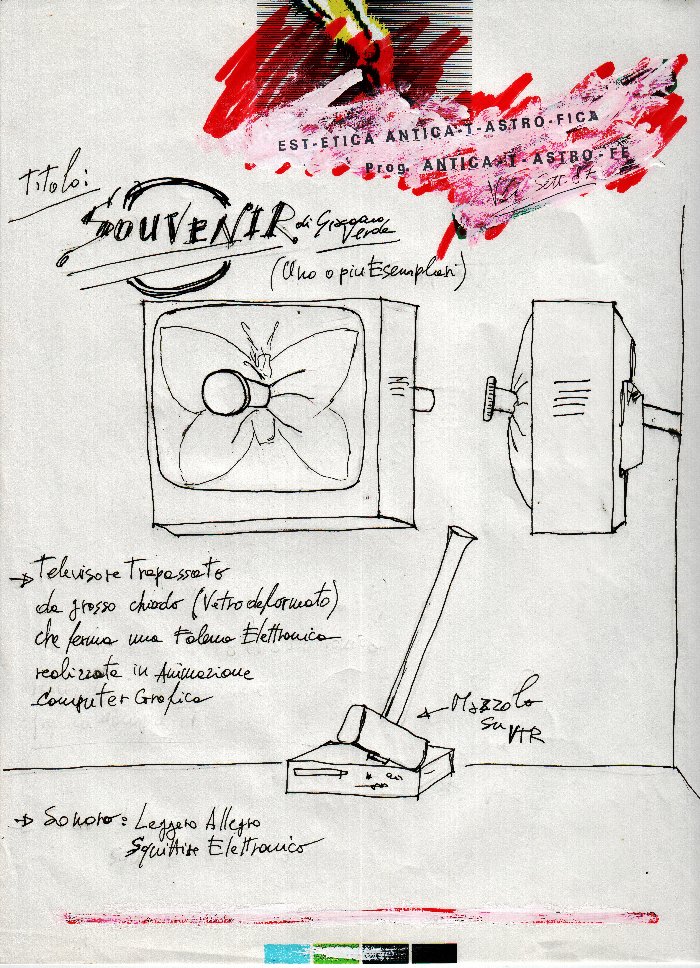 EST-ETICA ANTICA-T-ASTRO-FICA
Prog. ANTICA-T-ASTRO-FE
Sett. 87
Titolo:
SOUVENIR di Giacomo
Verde
(Uno o più Esemplari)
Televisore Trapassato
da grosso chiodo (Vetro deformato)
che ferma una Falena Elettronica
realizzata in Animazione
Computer Grafica
Mazzolo
su VTR
Sonoro: Leggero Allegro
Squittire Elettronico